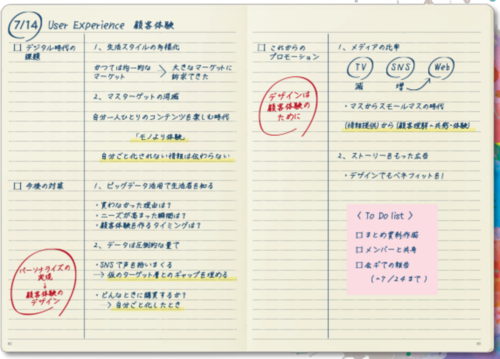 7/14 User Experience 顧客体験
□ デジタル時代の
課題
1、生活スタイルの多様化
かつては均一的な
マーケット
＞
大きなマーケットに
訴求できた
2、マスターゲットの消滅
自分一人ひとりのコンテンツを楽しむ時代
「モノより体験」
自分ごと化されない情報は伝わらない
□ 今後の対策
1、ビッグデータ活用で生活者を知る
・買わなかった理由は？
・ニーズが高まった瞬間は？
・顧客体験を作るタイミングは？
2、データは圧倒的な量で
・SNSで声を拾いまくる
→ 仮のターゲット層とのギャップを埋める
・どんなときに購買するか？
→ 自分ごと化したとき
パーソナライズの
実現
↓
顧客体験の
デザイン
□ これからの
プロモーション
デザインは
顧客体験の
ために
1、メディアの比率
TV SNS Web
減 増
・マスからスモールマスの時代
(情報提供)から(顧客理解＝共感・体験)
2、ストーリーをもった広告
・デザインでもベネフィットを！
〈 To Do list 〉
□ まとめ資料作成
□ メンバーと共有
□ 全ギでの報告
(→7/24まで)